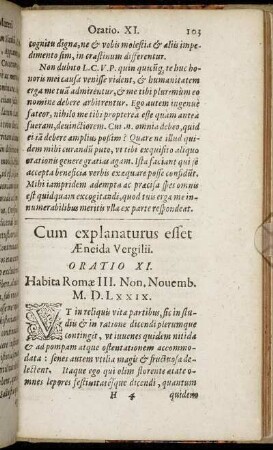 Oratio. XI. 103
cognitu digna, ne & vobis molestia & aliis impe
dimento sim, in crastinum differentur.
Non dubito L.C.V.P. quin quicūq; te huc ho
noris mei causa venisse vident, & humanitatem
erga me tuā admirentur, & me tibi plurimùm eo
nomine debere arbitrentur. Ego autem ingenuè
fateor, nihilo me tibi propterea esse quàm antea
fueram, deuinctiorem. Cui n. omnia debeo, quid
ei iā debere amplius possim? Quare ne illud qui-
dem mihi curandū puto, vt tibi exquisito aliquo
orationis genere gratias agam. Ista faciant qui se
accepta beneficia verbis exæquare posse confidūt.
Mihi iampridem adempta ac præcisa spes omnis
est quidquam excogitandi, quod tuis erga me in-
numerabilibus meritis vlla ex parte respondeat.
Cum explanaturus esset
Æneida Vergilii.
ORATIO XI.
Habita Romæ III. Non, Nouemb.
M. D. LXXIX.
VT in reliquis vitæ partibus, sic in stu-
diis & in ratione dicendi plerumque
contingit, vt iuuenes quidem nitida
& ad pompam atque ostentationem accommo-
data: senes autem vtilia magis & fructuosa de-
lectent. Itaque ego qui olim florente ætate o-
mnes lepores festiuitatesque dicendi, quantum
H 4 quidem